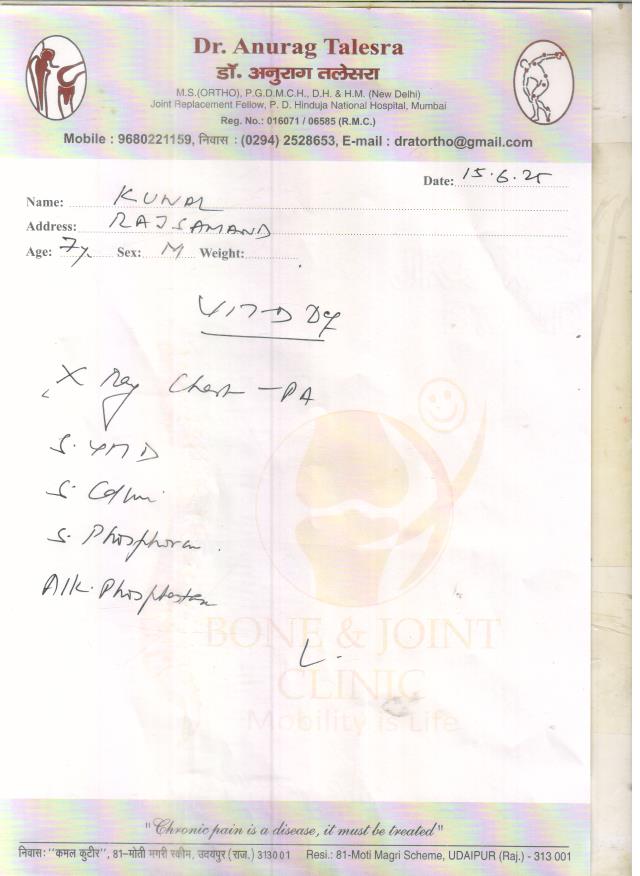 Dr. Anurag Talesra
डॉ. अनुराग तलेसरा
M.S.(ORTHO), P.G.D.M.C.H., D.H. & H.M. (New Delhi)
Joint Replacement Fellow, P. D. Hinduja National Hospital, Mumbai
Reg. No.: 016071 / 06585 (R.M.C.)
Mobile : 9680221159, निवास : (0294) 2528653, E-mail : dratortho@gmail.com
Date: 15.6.25
Name: KUNAL
Address: RAJSAMAND
Age: 7y. Sex: M Weight:
VIT-D Def
X Ray Chest - PA
S. VIT D
S. Calcium
S. Phosphorus
Alk. Phosphatase
BONE & JOINT
CLINIC
Mobility is Life
"Chronic pain is a disease, it must be treated"
निवास: "कमल कुटीर", 81-मोती मगरी स्कीम, उदयपुर (राज.) 313001 Resi.: 81-Moti Magri Scheme, UDAIPUR (Raj.) - 313 001